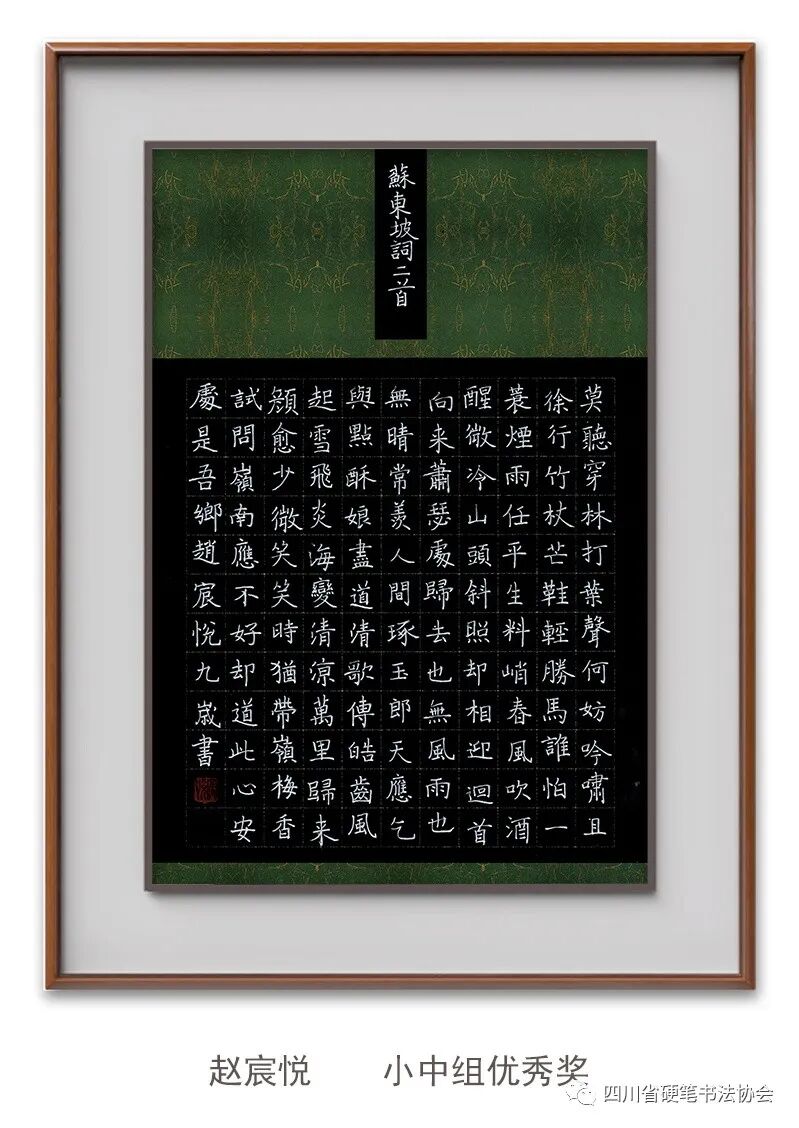 蘇東坡詞二首
莫聽穿林打葉聲何妨吟嘯且
徐行竹杖芒鞋輕勝馬誰怕一
蓑煙雨任平生料峭春風吹酒
醒微冷山頭斜照却相迎迴首
向来蕭瑟處歸去也無風雨也
無晴常羨人間琢玉郎天應乞
與點酥娘盡道清歌傳皓齒風
起雪飛炎海變清涼萬里歸来
顔愈少微笑笑時猶帶嶺梅香
試問嶺南應不好却道此心安
處是吾鄉趙宸悅九嵗書
赵宸悦 小中组优秀奖
四川省硬笔书法协会